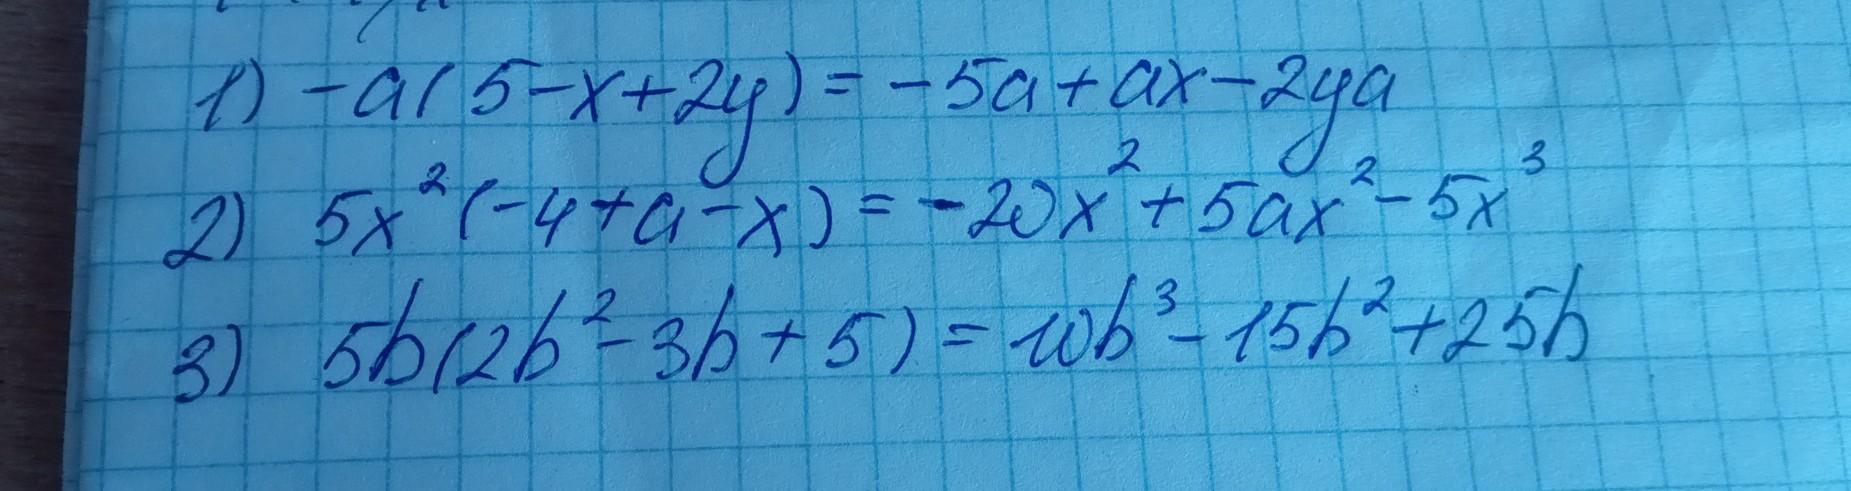 1) -a(5-x+2y)=-5a+ax-2ya
2) 5x²(-4+a-x)=-20x²+5ax²-5x³
3) 5b(2b²-3b+5)=10b³-15b²+25b